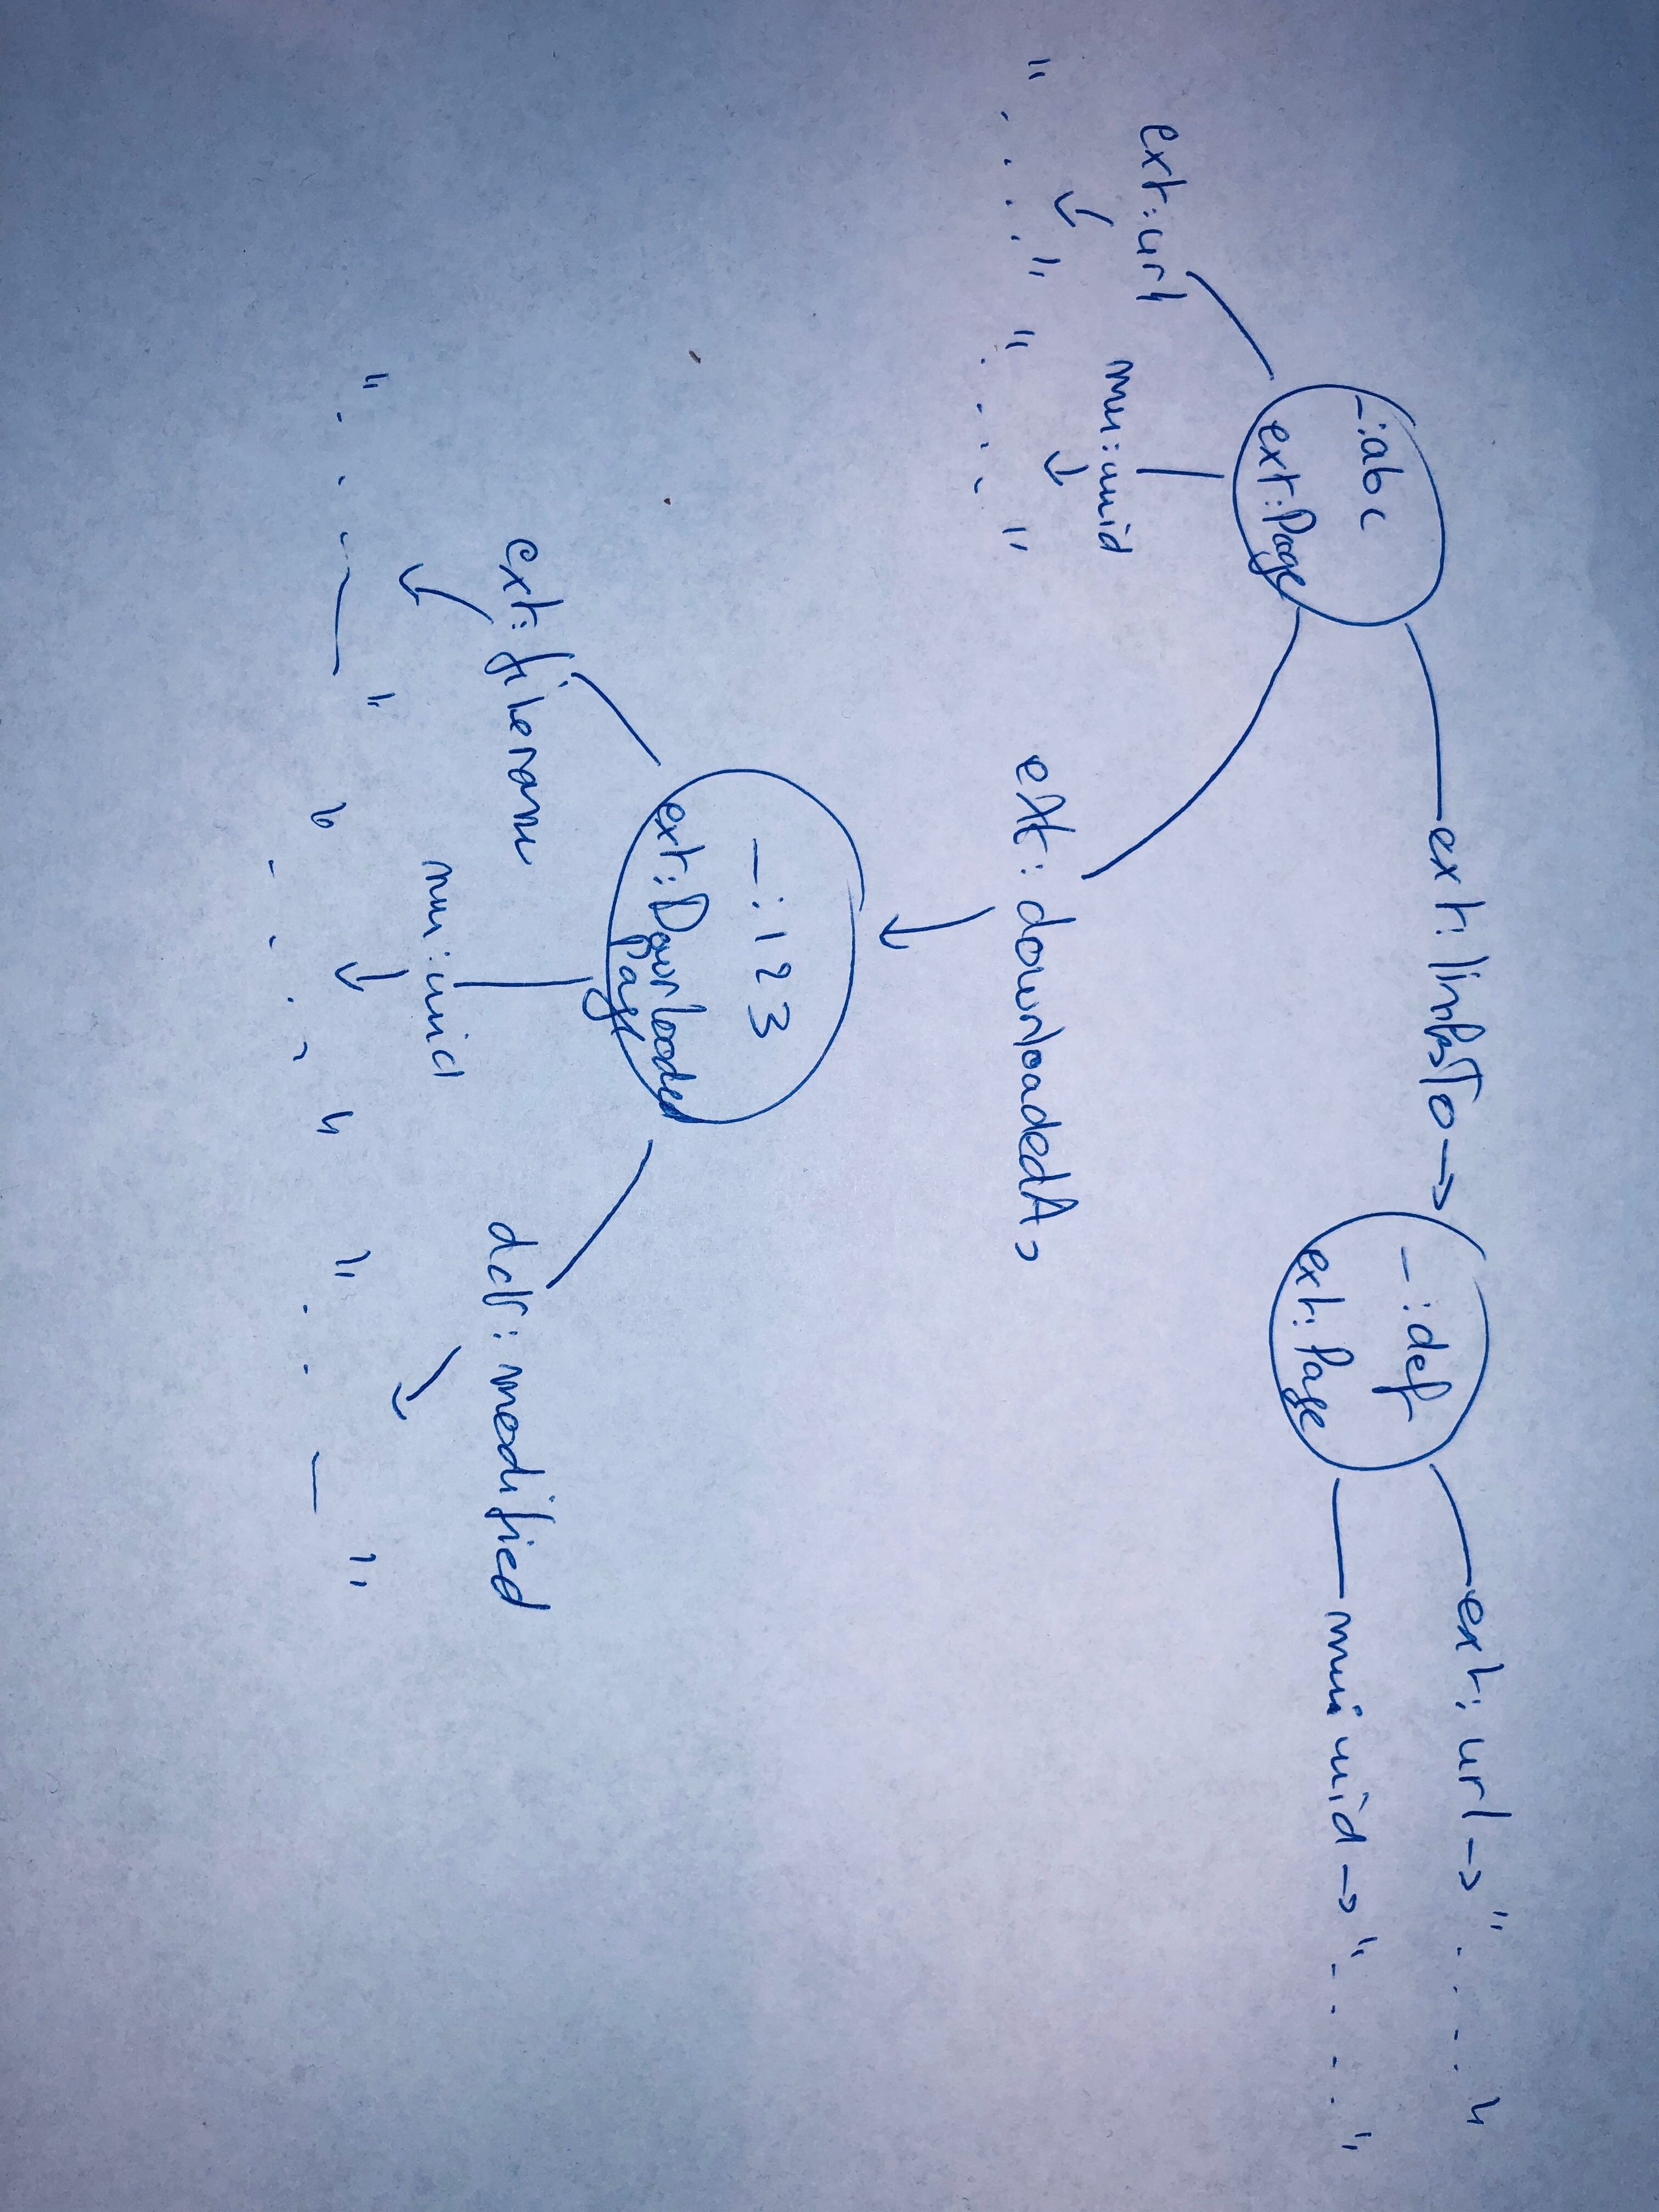 _:abc
ext:Page
ext:linksTo →
_:def
ext:Page
ext:url → "....."
mu:uuid → "....."
ext:url
↓
"....."
mu:uuid
↓
"....."
ext:downloadedAs
↓
_:123
ext:Downloaded
Page
ext:filename
↓
"...—"
mu:uuid
↓
"....."
dct:modified
↓
"..—"